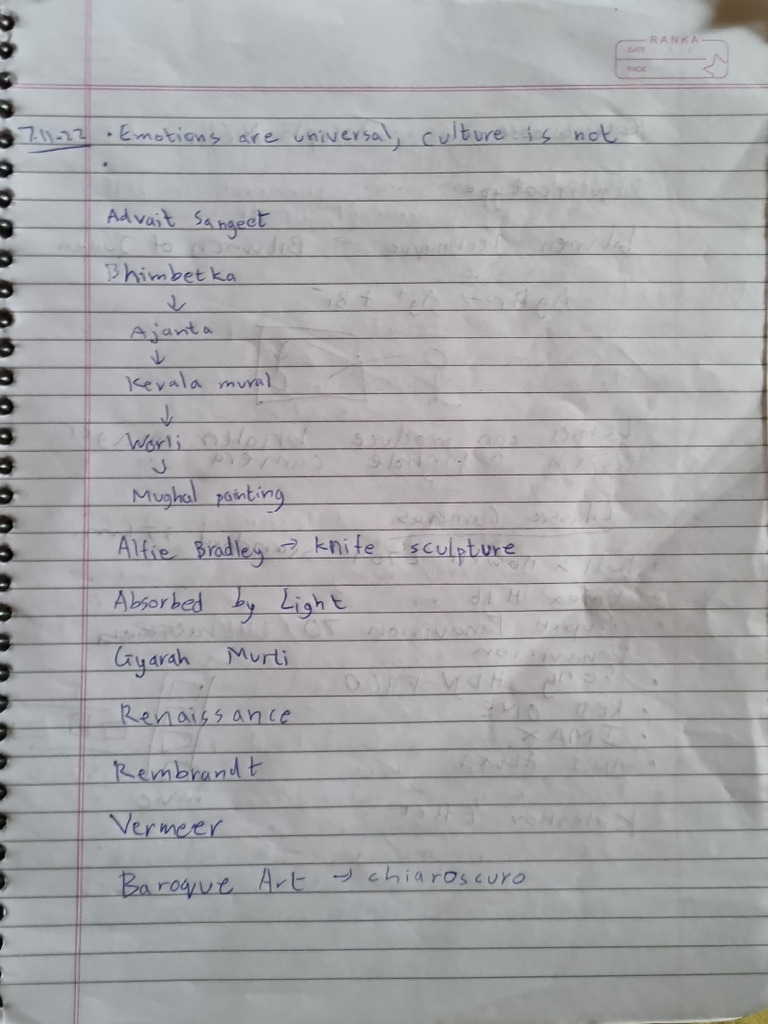 RANKA
DATE
PAGE
7.11.22 • Emotions are universal, culture is not
•
Advait Sangeet
Bhimbetka
↓
Ajanta
↓
Kerala mural
↓
Worli
↓
Mughal painting
Alfie Bradley → knife sculpture
Absorbed by Light
Gyarah Murti
Renaissance
Rembrandt
Vermeer
Baroque Art → chiaroscuro